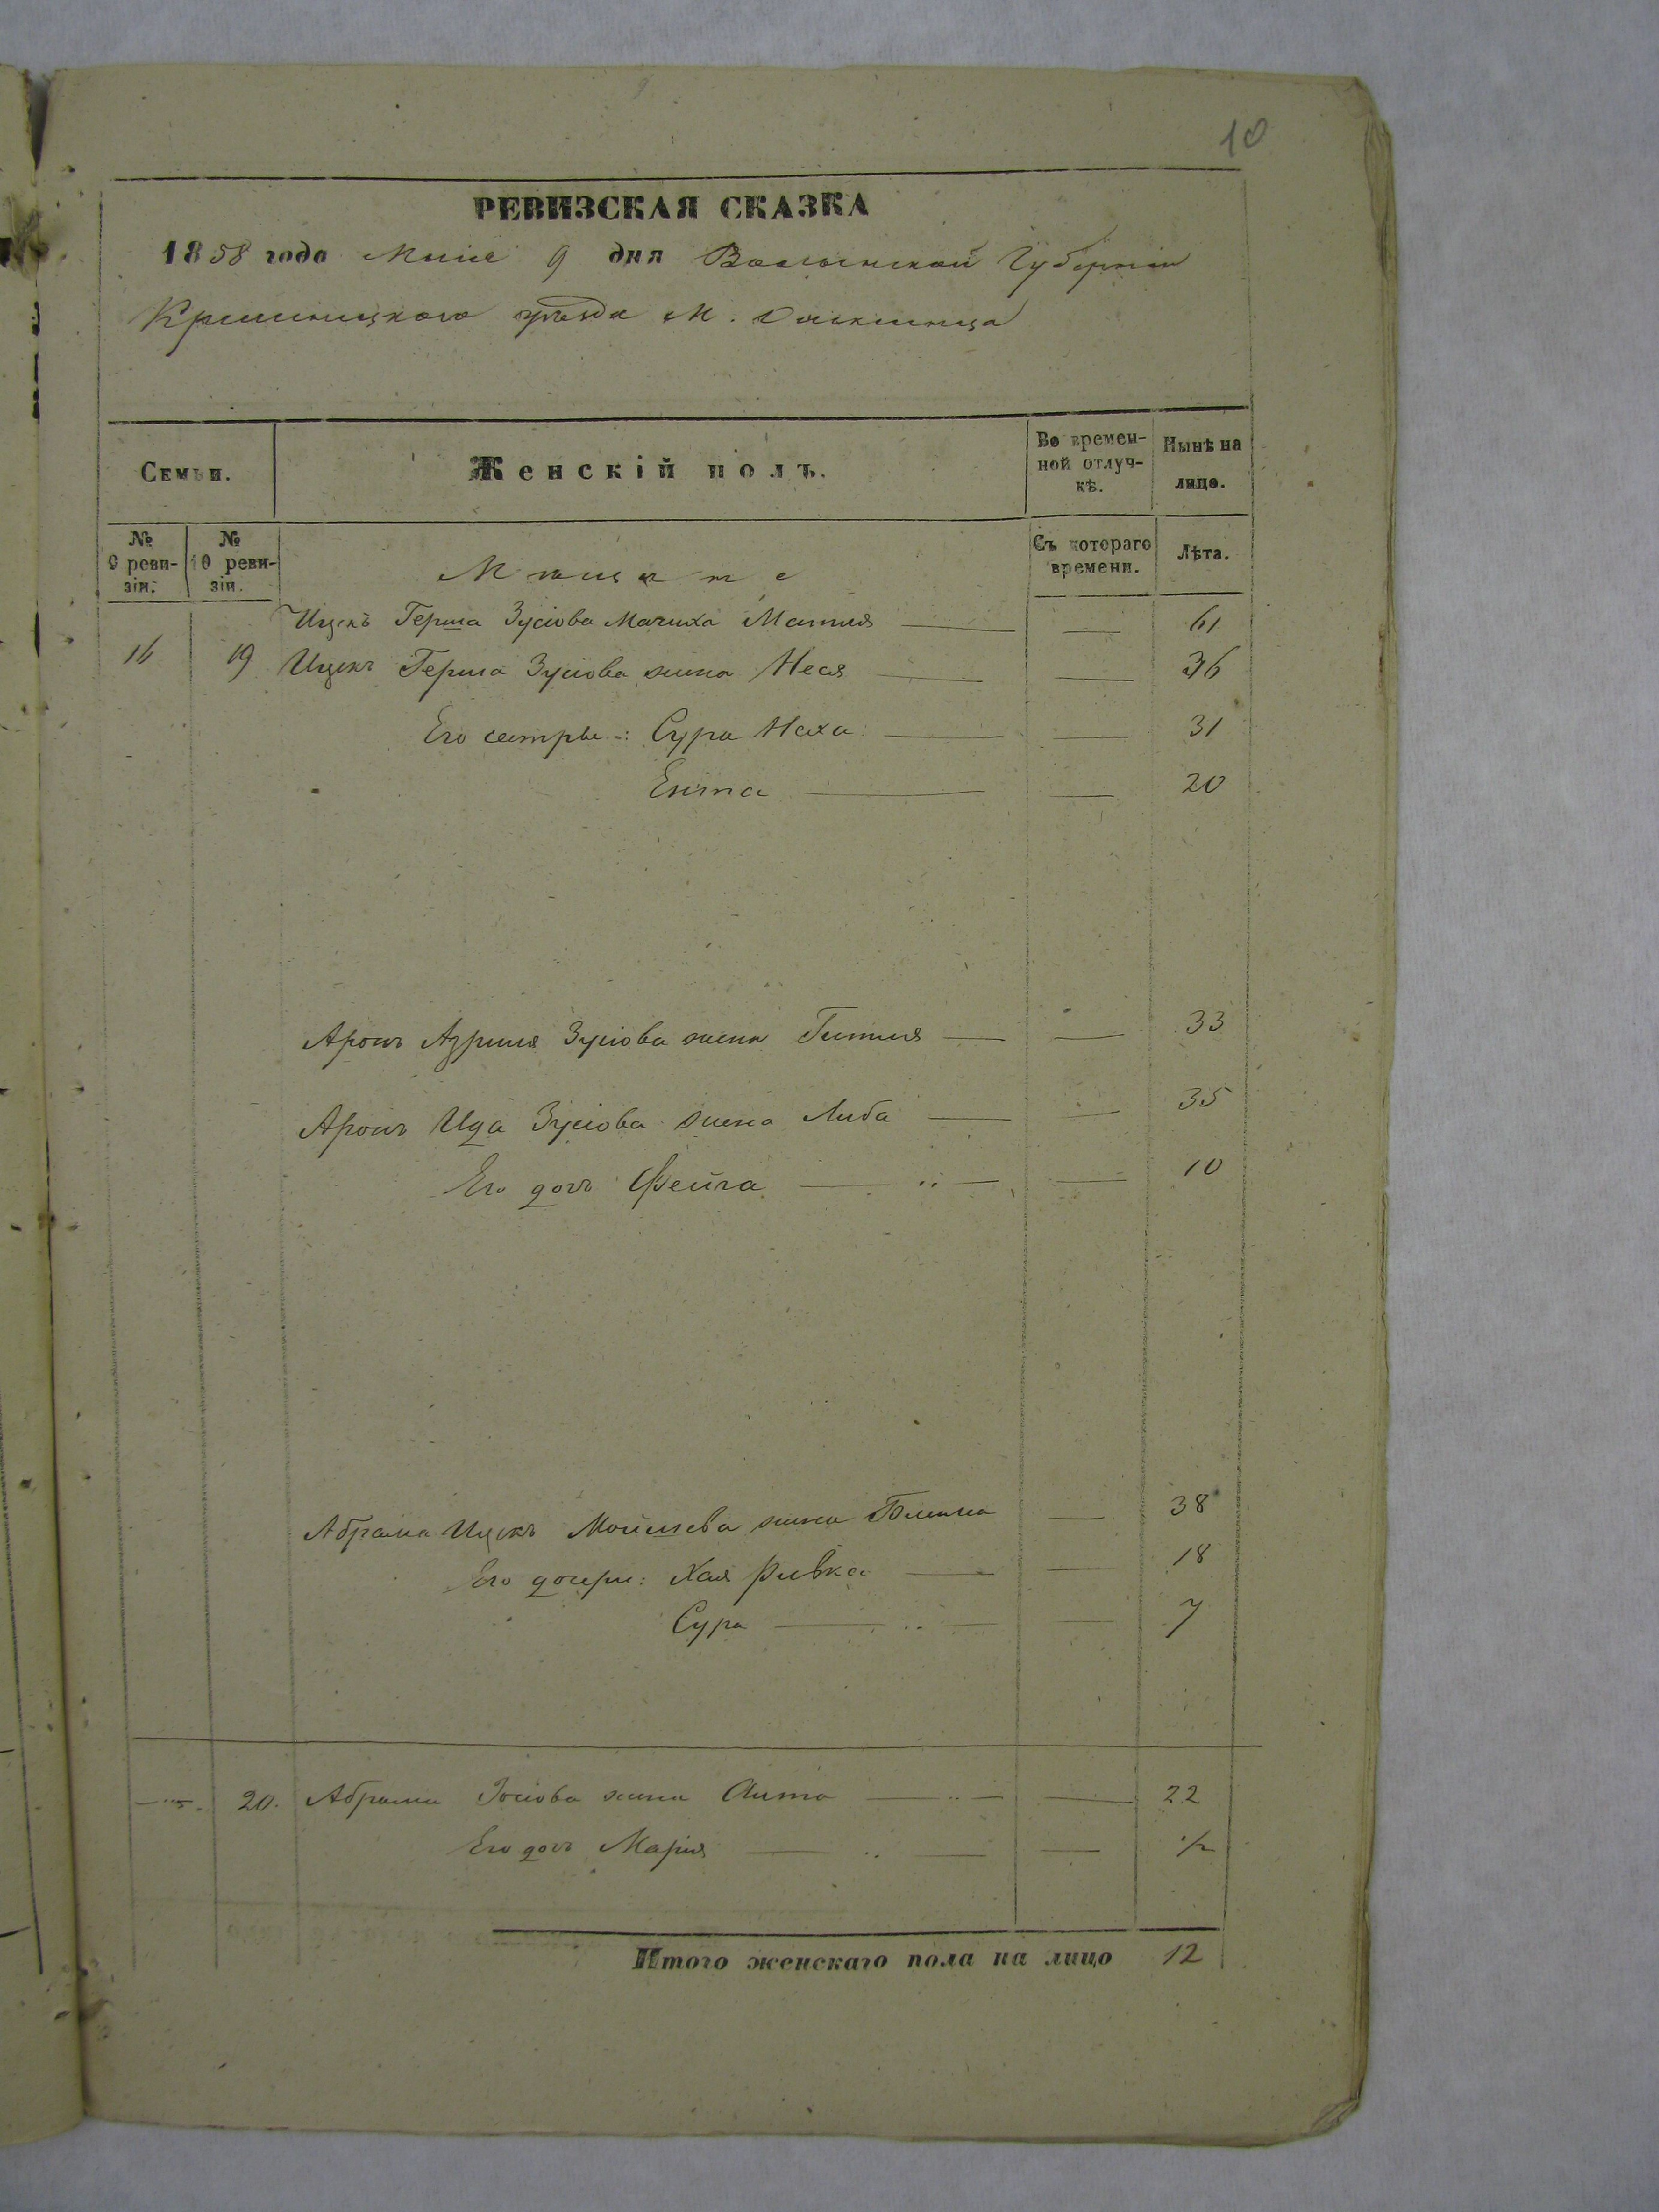 10
РЕВИЗСКАЯ СКАЗКА
1858 года Маія 9 дня Волынской Губерніи
Кременецкого уѣзда М.
Семьи.
Женскій полъ.
Во времен-
ной отлуч-
кѣ.
Нынѣ на
лицо.
№
9 реви-
зіи.
№
10 реви-
зіи.
Съ котораго
времени.
Лѣта.
Мѣщане
Ицекъ Герша Зусіова мачиха Матля 61
16 19 Ицекъ Герша Зусіова жена Неся 36
Его сестры: Сура Неха 31
Ента 20
Аронъ Азриля Зусіова жена Гитля 33
Аронъ Ида Зусіова жена Либа 35
Его дочь Фейга 10
Абрама Ицекъ Мойшева жена 38
Его дочери: Хая Ривка 18
Сура 7
20. Абрама Іосіова жена 22
Его дочь Марія 1/2
Итого женскаго пола на лицо 12